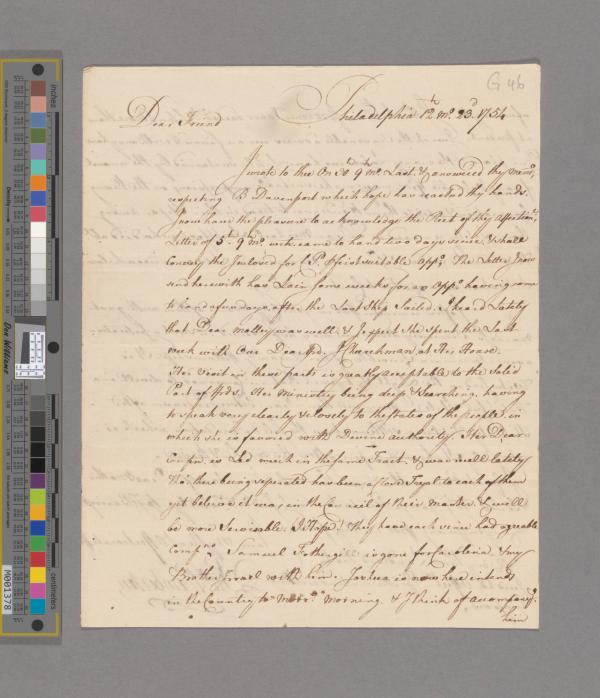 G 46
Philadelphia 12th mo. 23d 1754
Dear Friend
I wrote to thee On 30th 9th mo. Last. & answered thy
respecting B Davenport which hope has reached thy hands.
I now have the pleasure to acknowledge the Rect of thy Affection
Letter of 5th 9th mo. wch came to hand two days since & shall
Convey the Inclosed for S P. first suitable Oppy The Letter I now
send herewith has Lain some weeks for an Oppy having came
to hand a few days after the Last Ship Sailed. I heard Lately
that Dear Molley was well. & I expect she spent the Last
week with Our Dear Frd. J Churchman at His House.
Her visit in these parts is greatly acceptable to the Solid
Part of Frds. Her Ministry being deep & Searching. having
to speak very clearly & closely to the states of the people. in
which she is favoured with Divine authority. Her Dear
Compn. is Led much in the same Tract. & was well lately
Tho' there being seperated has been a Tryal to each of them
yet believe it was in the Council of their Master. & will
be more Servicable. I Hope. They have each since had agreable
Compns. Samuel Fothergill is gone for Carolina & my
Brother Israel with him. Joshua is now here intends
in the Country to Morrow Morning. & I think of accompanyg.
him
inches
centimeters
Don Williams
M001378